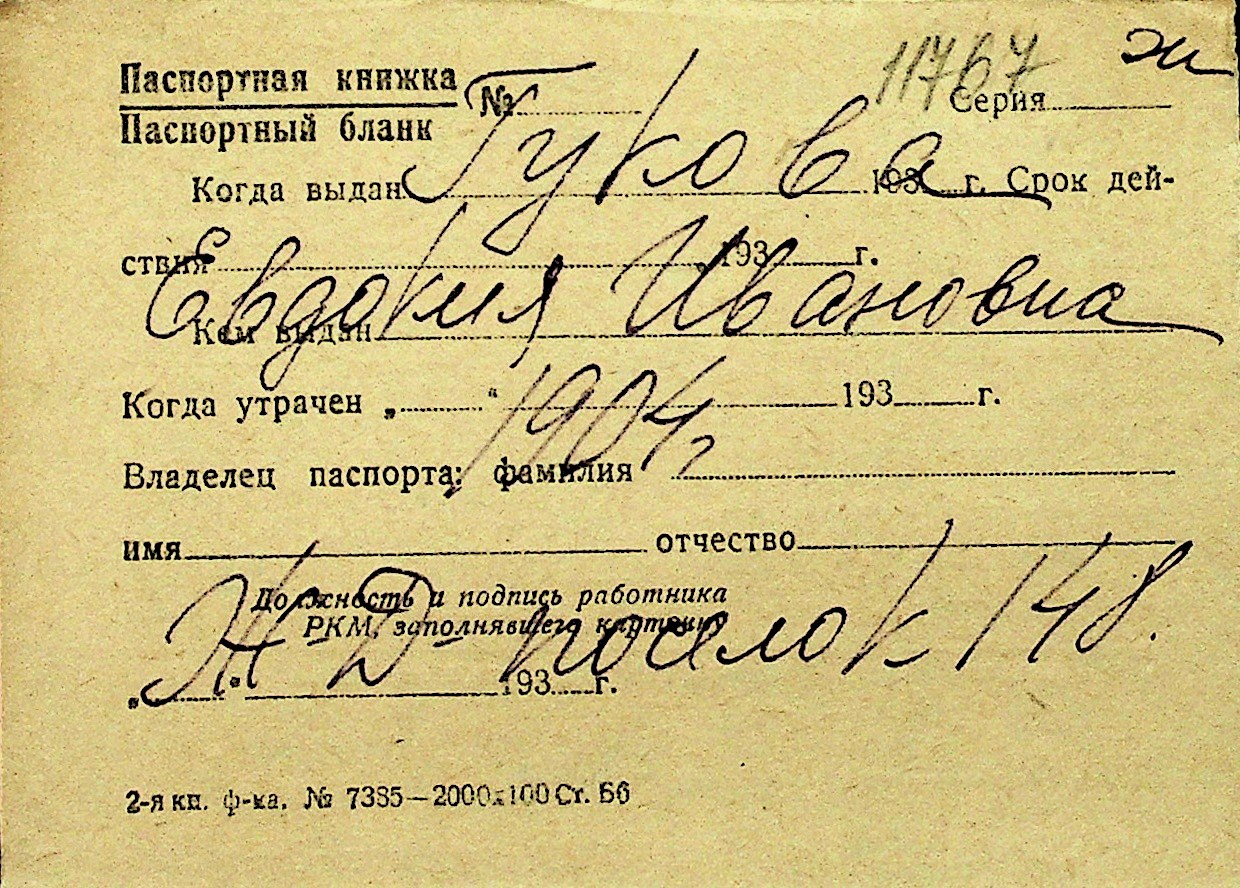 11767 жи
Паспортная книжка
Паспортный бланк
№ Серия
Гукова
Когда выдан 193 г. Срок дей-
ствия 193 г.
Евдокия Ивановна
Кем выдан
Когда утрачен „ “ 193 г.
1904,
Владелец паспорта: фамилия
имя отчество
Должность и подпись работника
РКМ, заполнявшего карточку
Ж-Д- поселок 148.
„ “ 193 г.
2-я кн. ф-ка. № 7385—2000х100 Ст. Бб